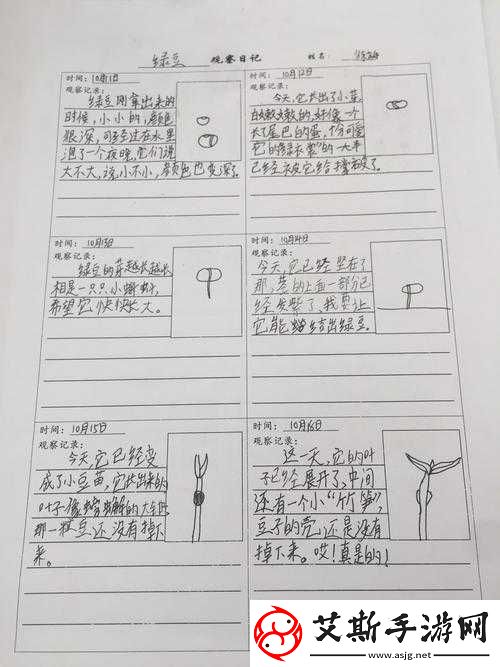 绿豆 观察日记 姓名:
时间: 10月1日
观察记录:
绿豆刚拿出来的
时候,小小的,颜色
很深,可经过在水里
泡了一个夜晚,它们说
大不大,说小不小,颜色也变深了。
时间: 10月12日
观察记录:
今天,它长出了小芽,
白嫩嫩的,好像一个
长了尾巴的蛋,十分可爱
它的“绿外套”的一大半
已经被它给撑破了。
时间: 10月13日
观察记录:
绿豆的芽越长越长
相是一只只小蝌蚪,
希望它快快长大。
时间: 10月14日
观察记录:
今天,它已经竖在了
那,茎的上面一部分已
经发紫了,我要让
它能结出绿豆。
时间: 10月15日
观察记录:
今天,它已经变
成了小豆苗,它长出来的
叶子像螃蟹的大
那一棵豆还没有掉下
来。
时间: 10月16日
观察记录:
这一天,它的叶
子已经展开了,中间
还有一个小“竹笋”,
豆子的壳还是没有
掉下来。哎!真是的!
艾斯手游网
www.asjg.net